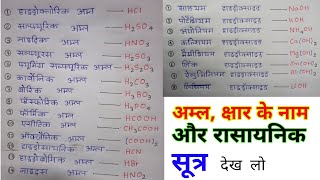 ① हाइड्रोक्लोरिक अम्ल — HCl
② सल्फ्यूरिक अम्ल — H₂SO₄
③ नाइट्रिक अम्ल — HNO₃
④ सल्फ्यूरस अम्ल — H₂SO₃
अम्ल — H₂S₂O₇
⑥ कार्बोनिक अम्ल — H₂CO₃
⑦ बोरिक अम्ल — H₃BO₃
⑧ फॉस्फोरिक अम्ल — H₃PO₄
⑨ फॉर्मिक अम्ल — HCOOH
⑩ एसीटिक अम्ल — CH₃COOH
⑪ ऑक्जेलिक अम्ल — (COOH)₂
⑫ हाइड्रोसायनिक अम्ल — HCN
⑬ हाइड्रोब्रोमिक अम्ल — HBr
⑭ नाइट्रस अम्ल — HNO₂
① सोडियम हाइड्रॉक्साइड — NaOH
② पोटैशियम हाइड्रॉक्साइड — KOH
③ अमोनियम हाइड्रॉक्साइड — NH₄OH
④ कैल्शियम हाइड्रॉक्साइड — Ca(OH)₂
⑤ मैग्नीशियम हाइड्रॉक्साइड
⑥ जिंक हाइड्रॉक्साइड
हाइड्रॉक्साइड
लिथियम हाइड्रॉक्साइड — LiOH
अम्ल, क्षार के नाम
और रासायनिक
सूत्र देख लो